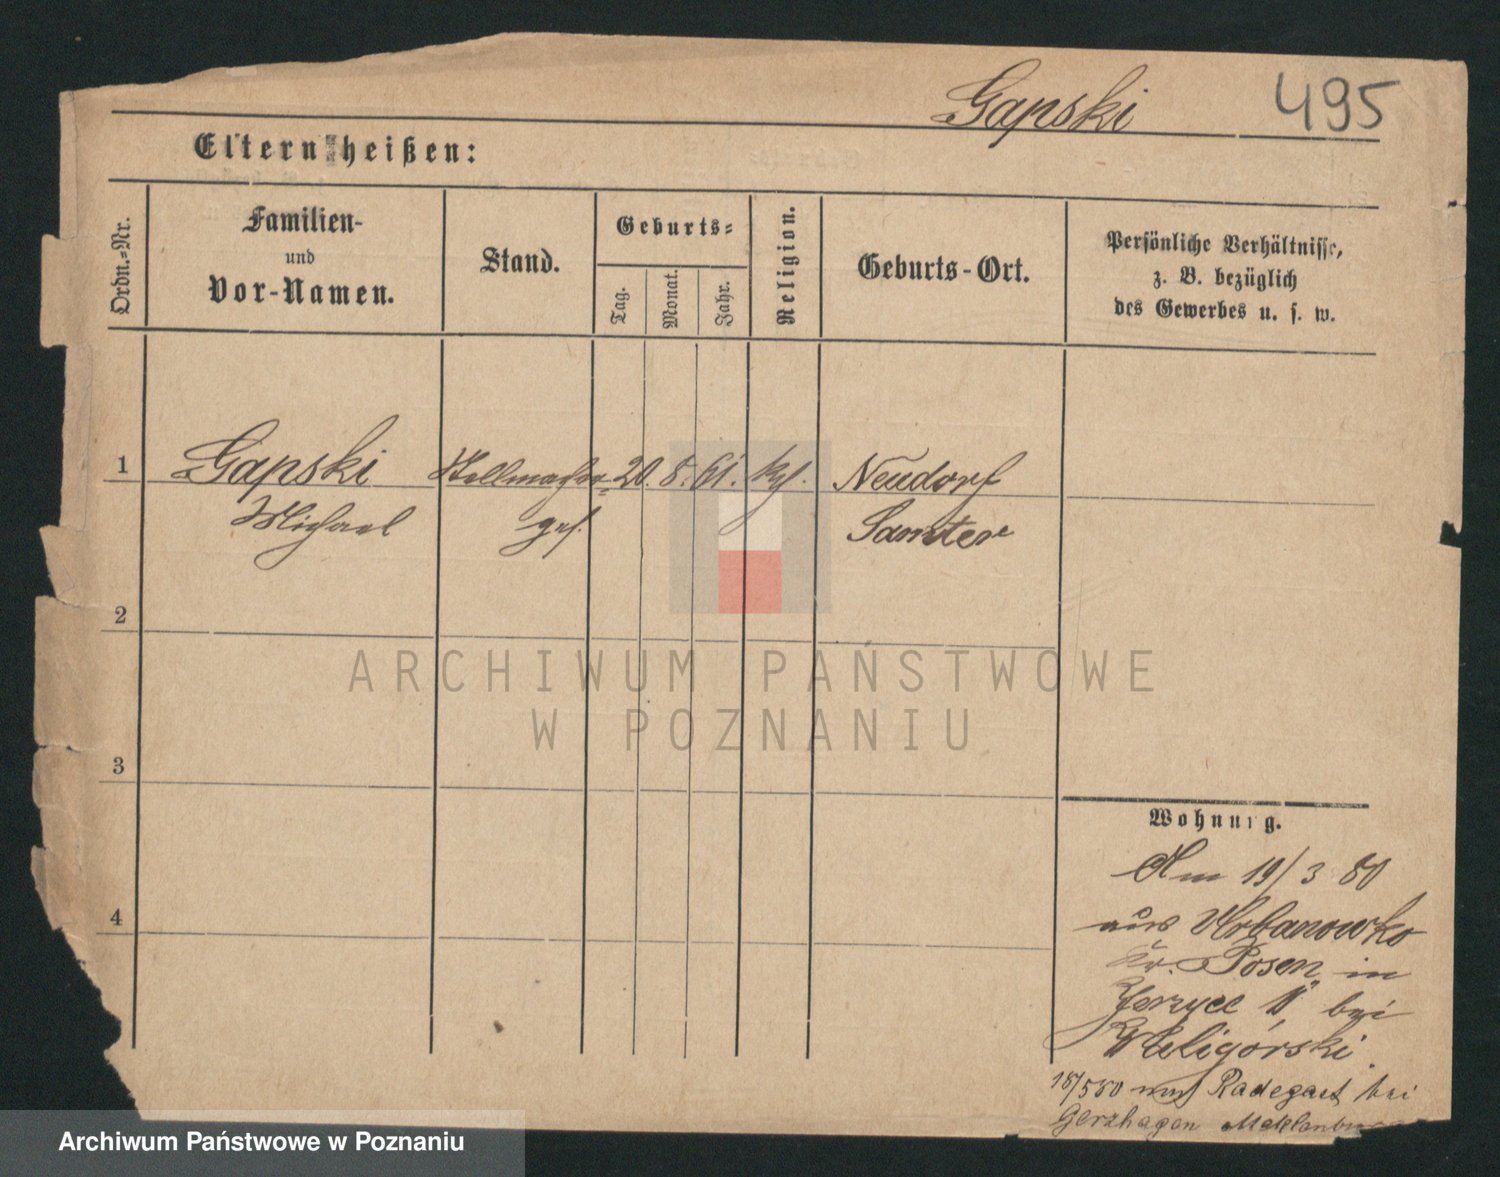 Gapski 495
Eltern heißen:
Ordn.-Nr.
Familien-
und
Vor-Namen.
Stand.
Geburts-
Tag.
Monat.
Jahr.
Religion.
Geburts-Ort.
Persönliche Verhältnisse,
z. B. bezüglich
des Gewerbes u. s. w.
1 Gapski Stellmacher 20. 8. 61. kth. Neudorf
Michael ges. Samter
2
3
4
ARCHIWUM PAŃSTWOWE
W POZNANIU
Wohnung.
Am 19/3 80
aus Urbanowko
Kr. Posen in
Jerzyce bei
Weligórski
18/5 80 nach Radegast bei
Gerzhagen Meklenburg
Archiwum Państwowe w Poznaniu